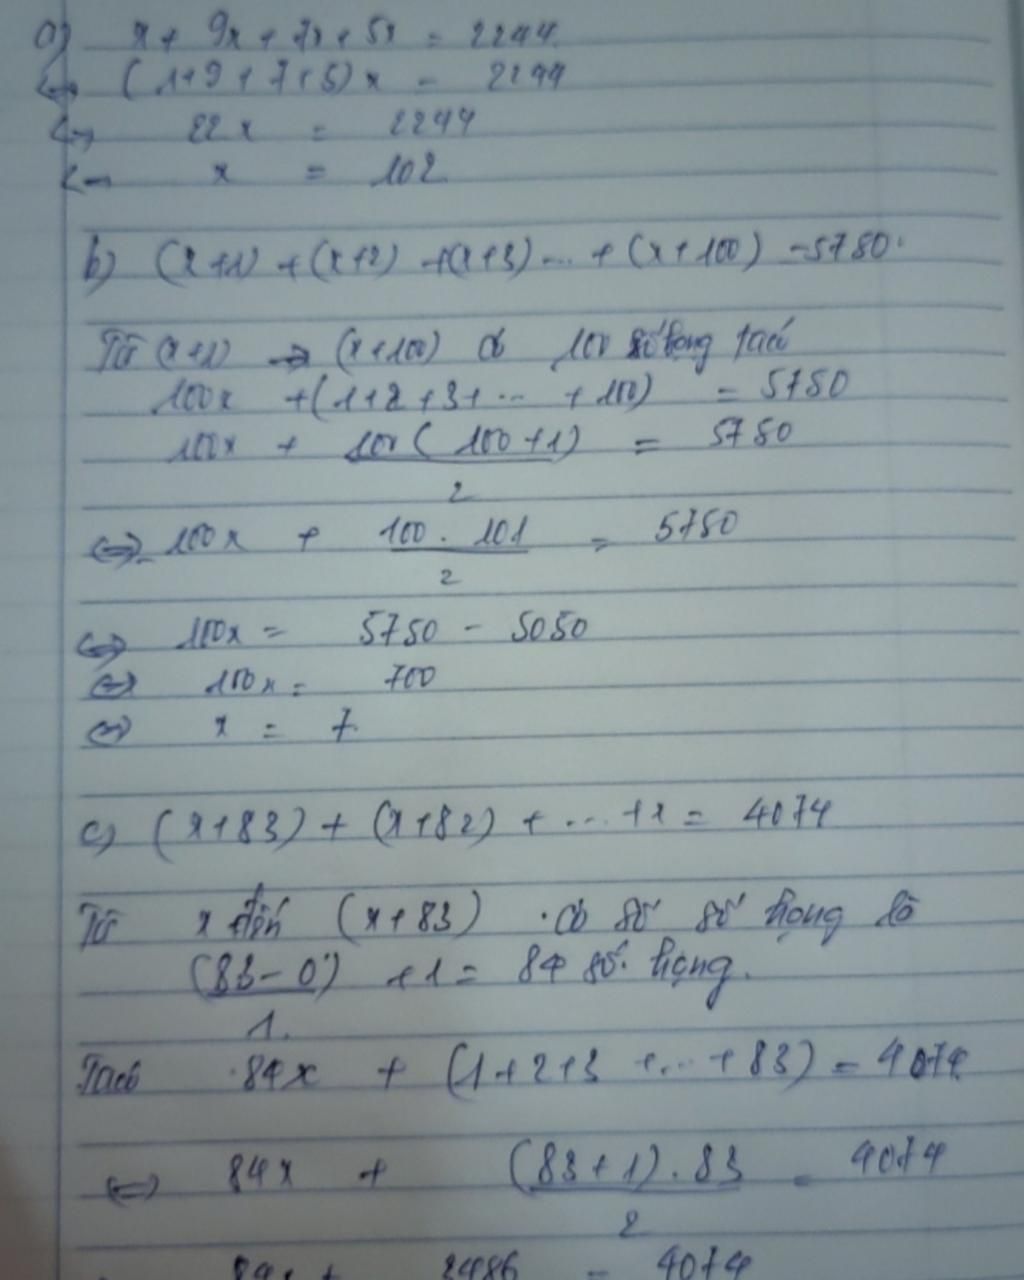 a) x + 9x + 7x + 5x = 2244
<=> (1+9+7+5)x = 2244
<=> 22x = 2244
<=> x = 102
b) (x+1) + (x+2) + (x+3) ... + (x+100) = 5750.
Từ (x+1) → (x+100) có 100 số hạng ta có
100x + (1+2+3+ ... + 100) = 5750
100x + 100(100+1)/2 = 5750
<=> 100x + 100.101/2 = 5750
<=> 100x = 5750 - 5050
<=> 100x = 700
<=> x = 7.
c) (x+83) + (x+82) + ... + x = 4074
Từ x đến (x+83) có số số hạng là
(83-0)/1 + 1 = 84 số hạng.
Ta có 84x + (1+2+3 + ... + 83) = 4074
<=> 84x + (83+1).83/2 = 4074
84x + 3486 = 4074